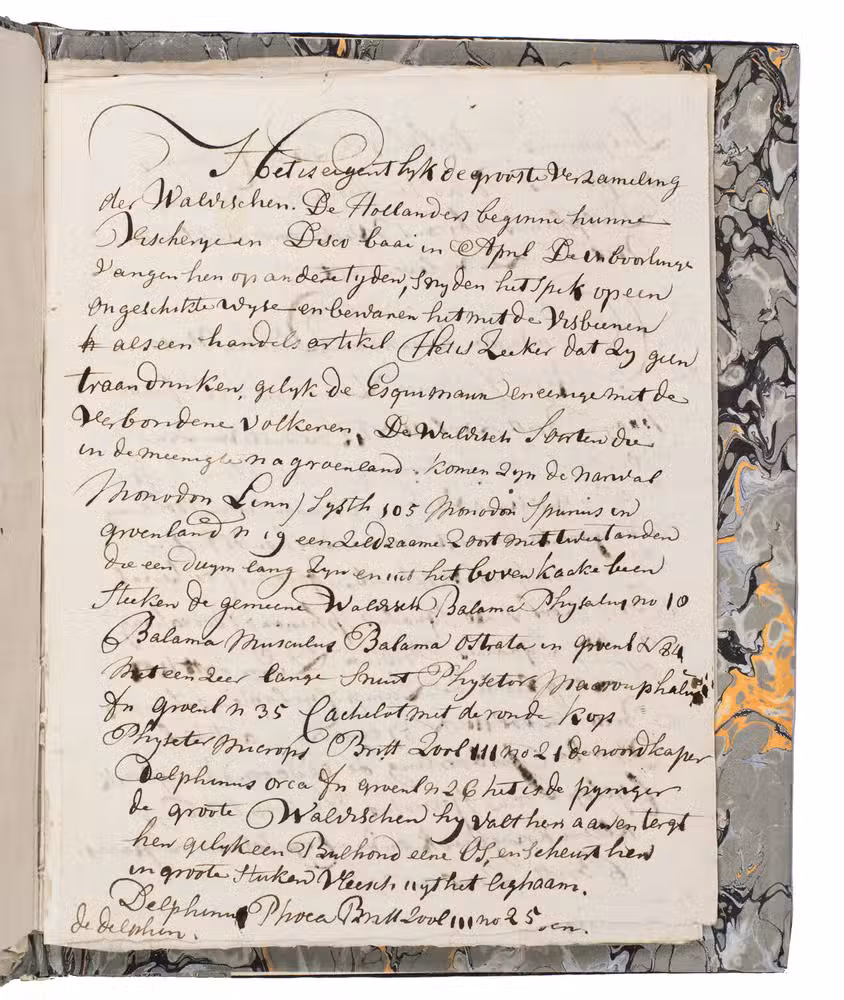 Het is eigentlyk de grootste verzameling
der Walvischen. De Hollanders beginne hunne
Vischerye in Disco baai in April De inboorlinge
vangen hen op andere tyden, snyden het spek op een
ongeschikte wyse en bewaren het met de Visbeenen
als een handels artikel Het is Zeeker dat zy geen
traan drinken, gelyk de Esquimaux en eenige met de
verbondene volkeren. De Walvisch Soorten die
in de meenigte na groenland komen zyn de narwal
Monodon Linn) Systh 105 Monodon Spurius in
groenland n 19 een zeldzaame zoort met twee tanden
die een duym lang zyn en uit het boven kaake been
steeken de gemeene Walvisch Balama Physalus no 18
Balama Musculus Balama Ostrata in groenl N 84
met een zeer lange Snuut Physetor Macrouphalus
In groenl n 35 Cachelot met de ronde kop
Physeter microps Britt Zool III no 21 de noordkaper
Delphinus orca In groenl n 26 het is de pyniger
de groote Walvischen hy valt hen aan en tergt
hen gelyk een Bulhond eene Os, en scheurt hen
in groote stuken Vleesch uyt het lighaam.
Delphinus Phoca Britt Zool III no 25 en.
de delphin.